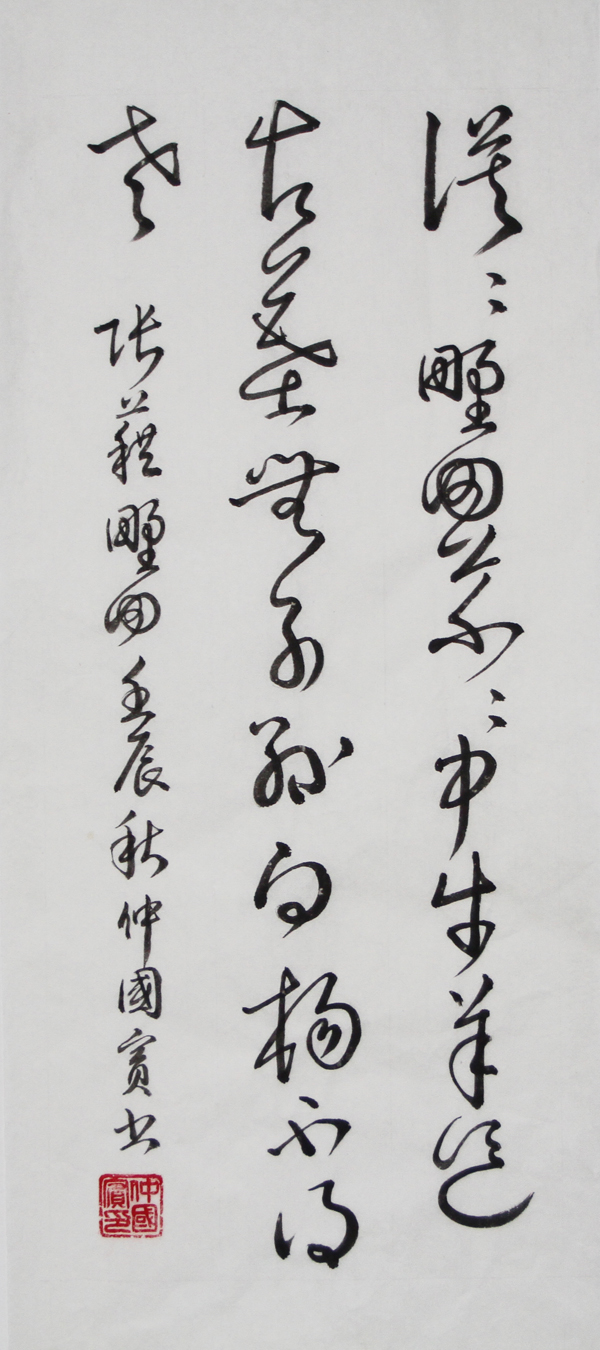 漠〻野田草〻中牛羊道
古墓無子孫白楊不得
老 張藉野田壬辰秋仲國賓书
仲國賓印